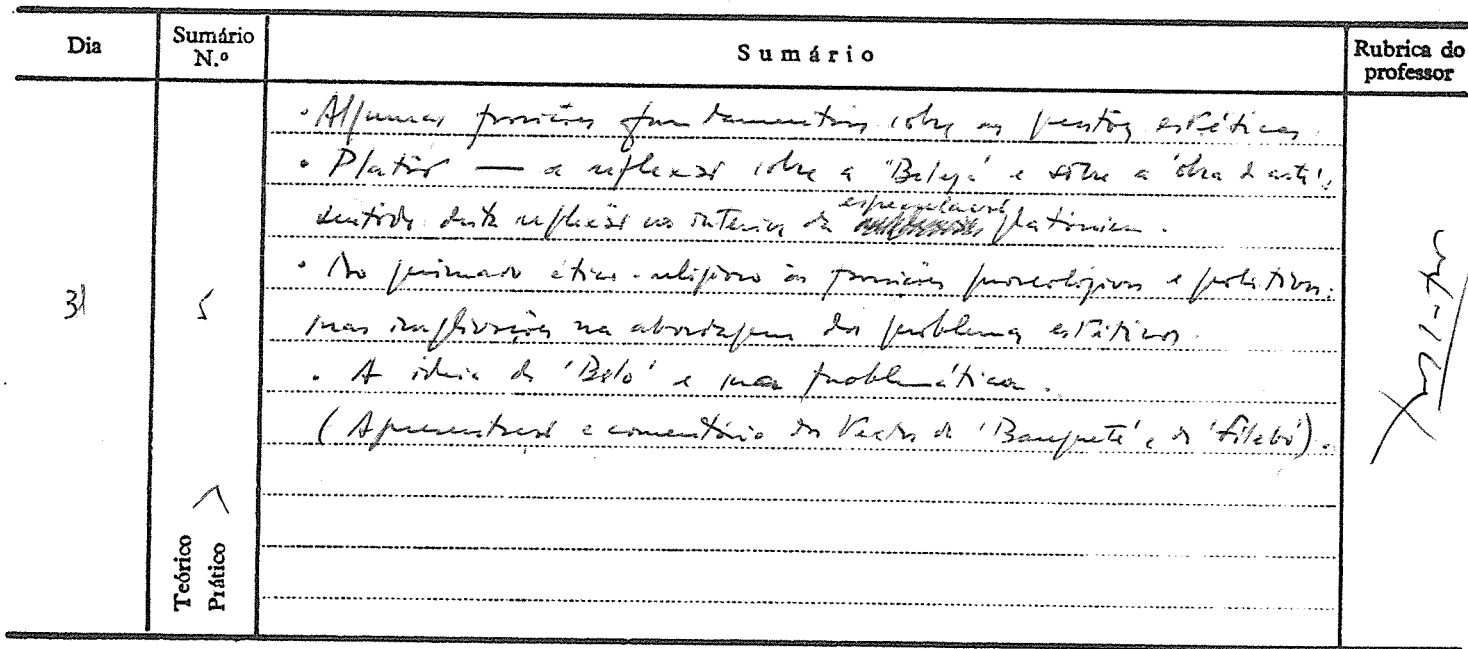 Dia
Sumário N.º
Sumário
Rubrica do professor
31
5
· Algumas posições fundamentais sobre as questões estéticas.
· Platão — a reflexão sobre a 'Beleza' e sobre a 'obra d'arte',
sentido desta reflexão no interior da especulação platónica.
· Do primado ético-religioso às posições gnoseológicas e políticas:
suas implicações na abordagem dos problemas estéticos.
· A ideia de 'Belo' e sua problemática.
(Apresentação e comentário de textos do 'Banquete' e do 'Filebo').
Teórico
Prático